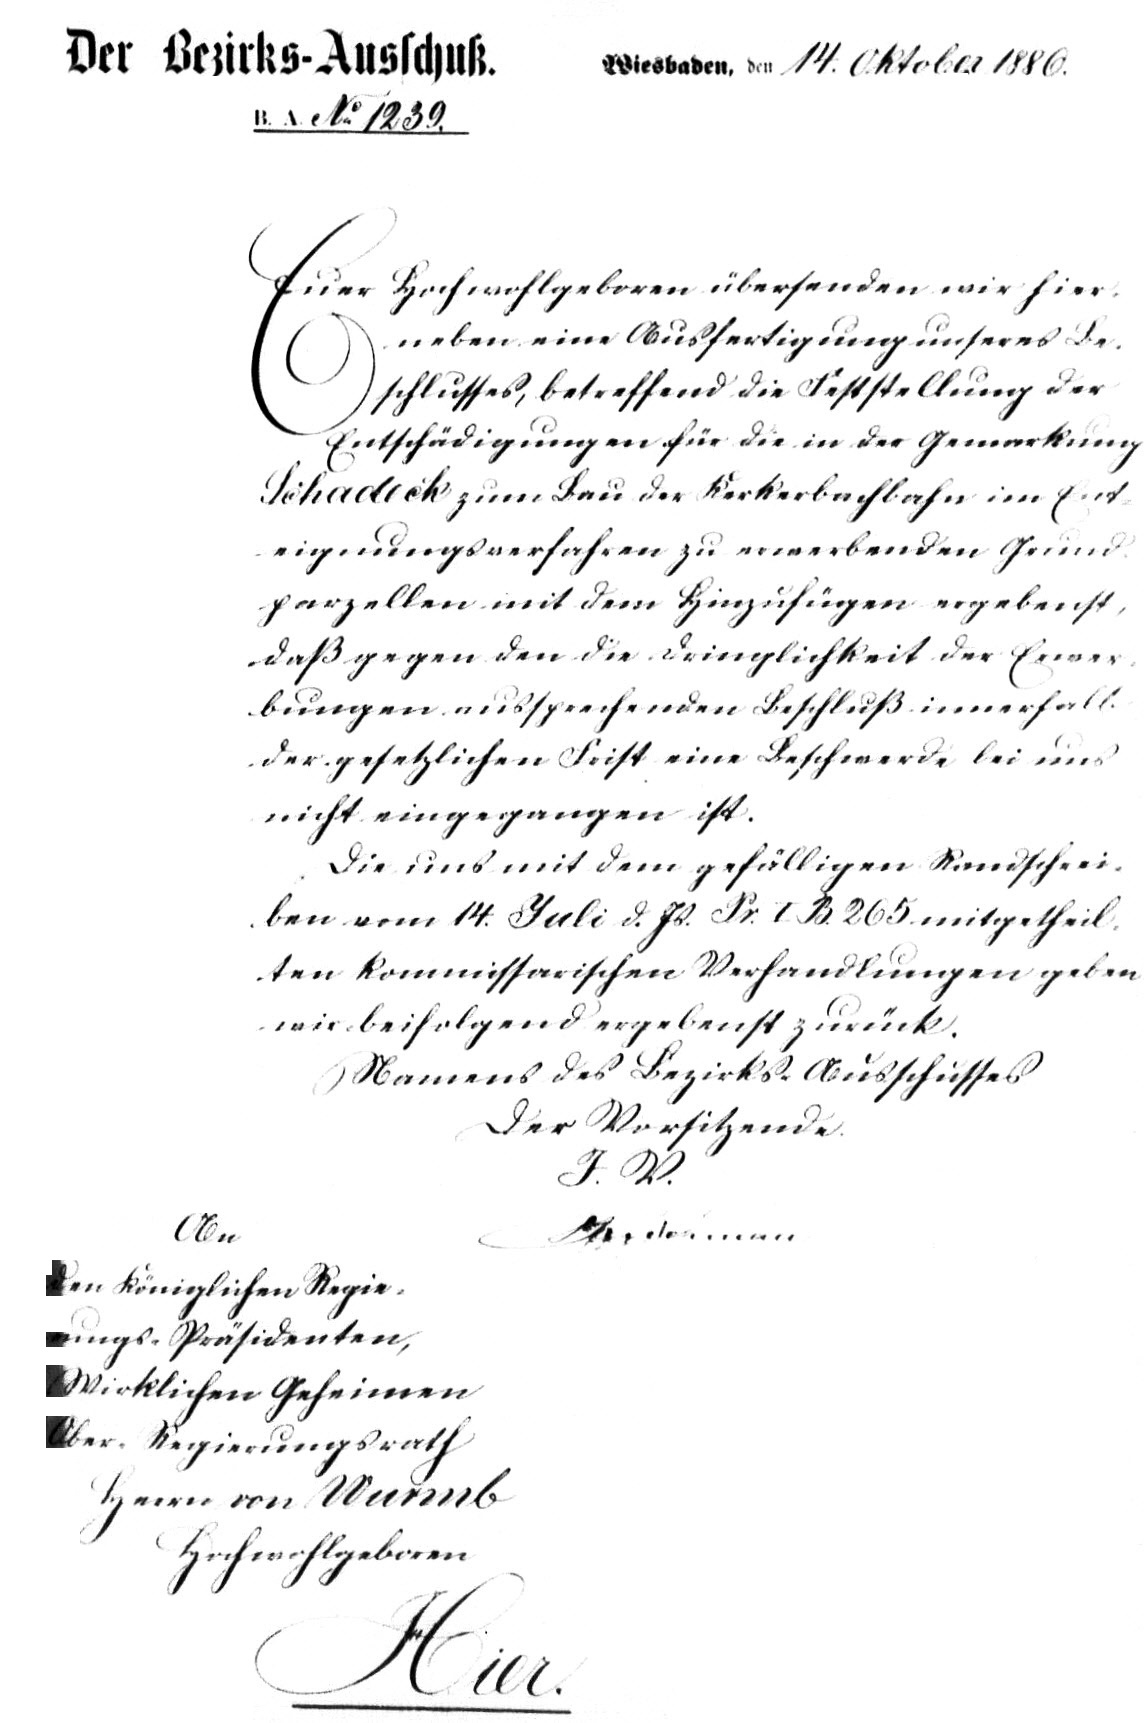 Der Bezirks-Ausschuß.
Wiesbaden, den 14. Oktober 1886.
B. A. No 1239.
Euer Hochwohlgeboren übersenden wir hier-
neben eine Ausfertigung unseres Be-
schlusses, betreffend die Feststellung der
Entschädigungen für die in der Gemarkung
Schadeck zum Bau der Kerkerbachbahn im Ent-
eignungsverfahren zu erwerbenden Grund-
parzellen mit dem Hinzufügen ergebenst,
daß gegen den die Dringlichkeit der Erwer-
bungen aussprechenden Beschluß innerhalb
der gesetzlichen Frist eine Beschwerde bei uns
nicht eingegangen ist.
Die uns mit dem gefälligen Randschrei-
ben vom 14. Juli d. Js. Pr. I. B. 265 mitgetheil-
ten kommissarischen Verhandlungen geben
wir beifolgend ergebenst zurück.
Namens des Bezirks-Ausschusses
Der Vorsitzende.
J. V.
An
den Königlichen Regie-
rungs-Präsidenten,
Wirklichen Geheimen
Ober-Regierungsrath
Herrn von Wurmb
Hochwohlgeboren
Hier.